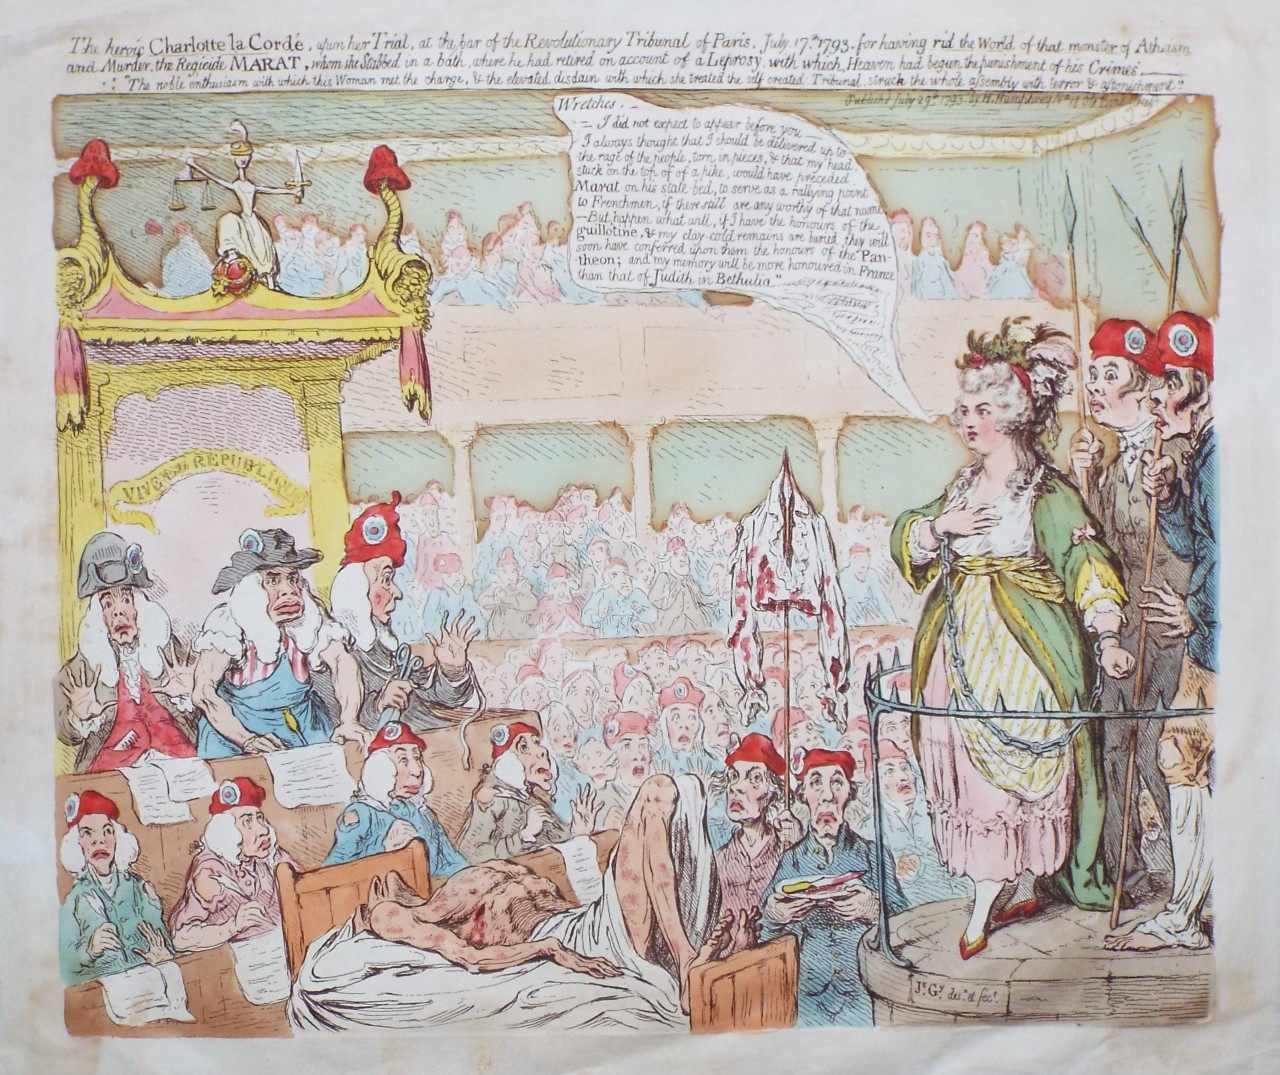 The heroic Charlotte la Cordé, upon her Trial, at the bar of the Revolutionary Tribunal of Paris, July 17.th 1793. for having rid the World of that monster of Atheism
and Murder, the Regicide MARAT, whom she Stabbed in a bath, where he had retired on account of a Leprosy, with which, Heaven had begun the punishment of his Crimes.
"The noble enthusiasm with which this Woman met the charge, & the elevated disdain with which she treated the self created Tribunal, struck the whole assembly with terror & astonishment."
Publish'd July 29th 1793. by H. Humphrey No 18 Old Bond Street
Wretches, —
— I did not expect to appear before you —
I always thought that I should be delivered up to
the rage of the people, torn in pieces, & that my head,
stuck on the top of of a pike, would have preceded
Marat on his state bed, to serve as a rallying point
to Frenchmen, if there still are any worthy of that name
— But, happen what will, if I have the honours of the
guillotine, & my clay-cold remains are buried, they will
soon have conferred upon them the honours of the Pan-
theon; and my memory will be more honoured in France
than that of Judith in Bethulia."
VIVE la REPUBLIQUE
Js. Gy. des.n et fec.t